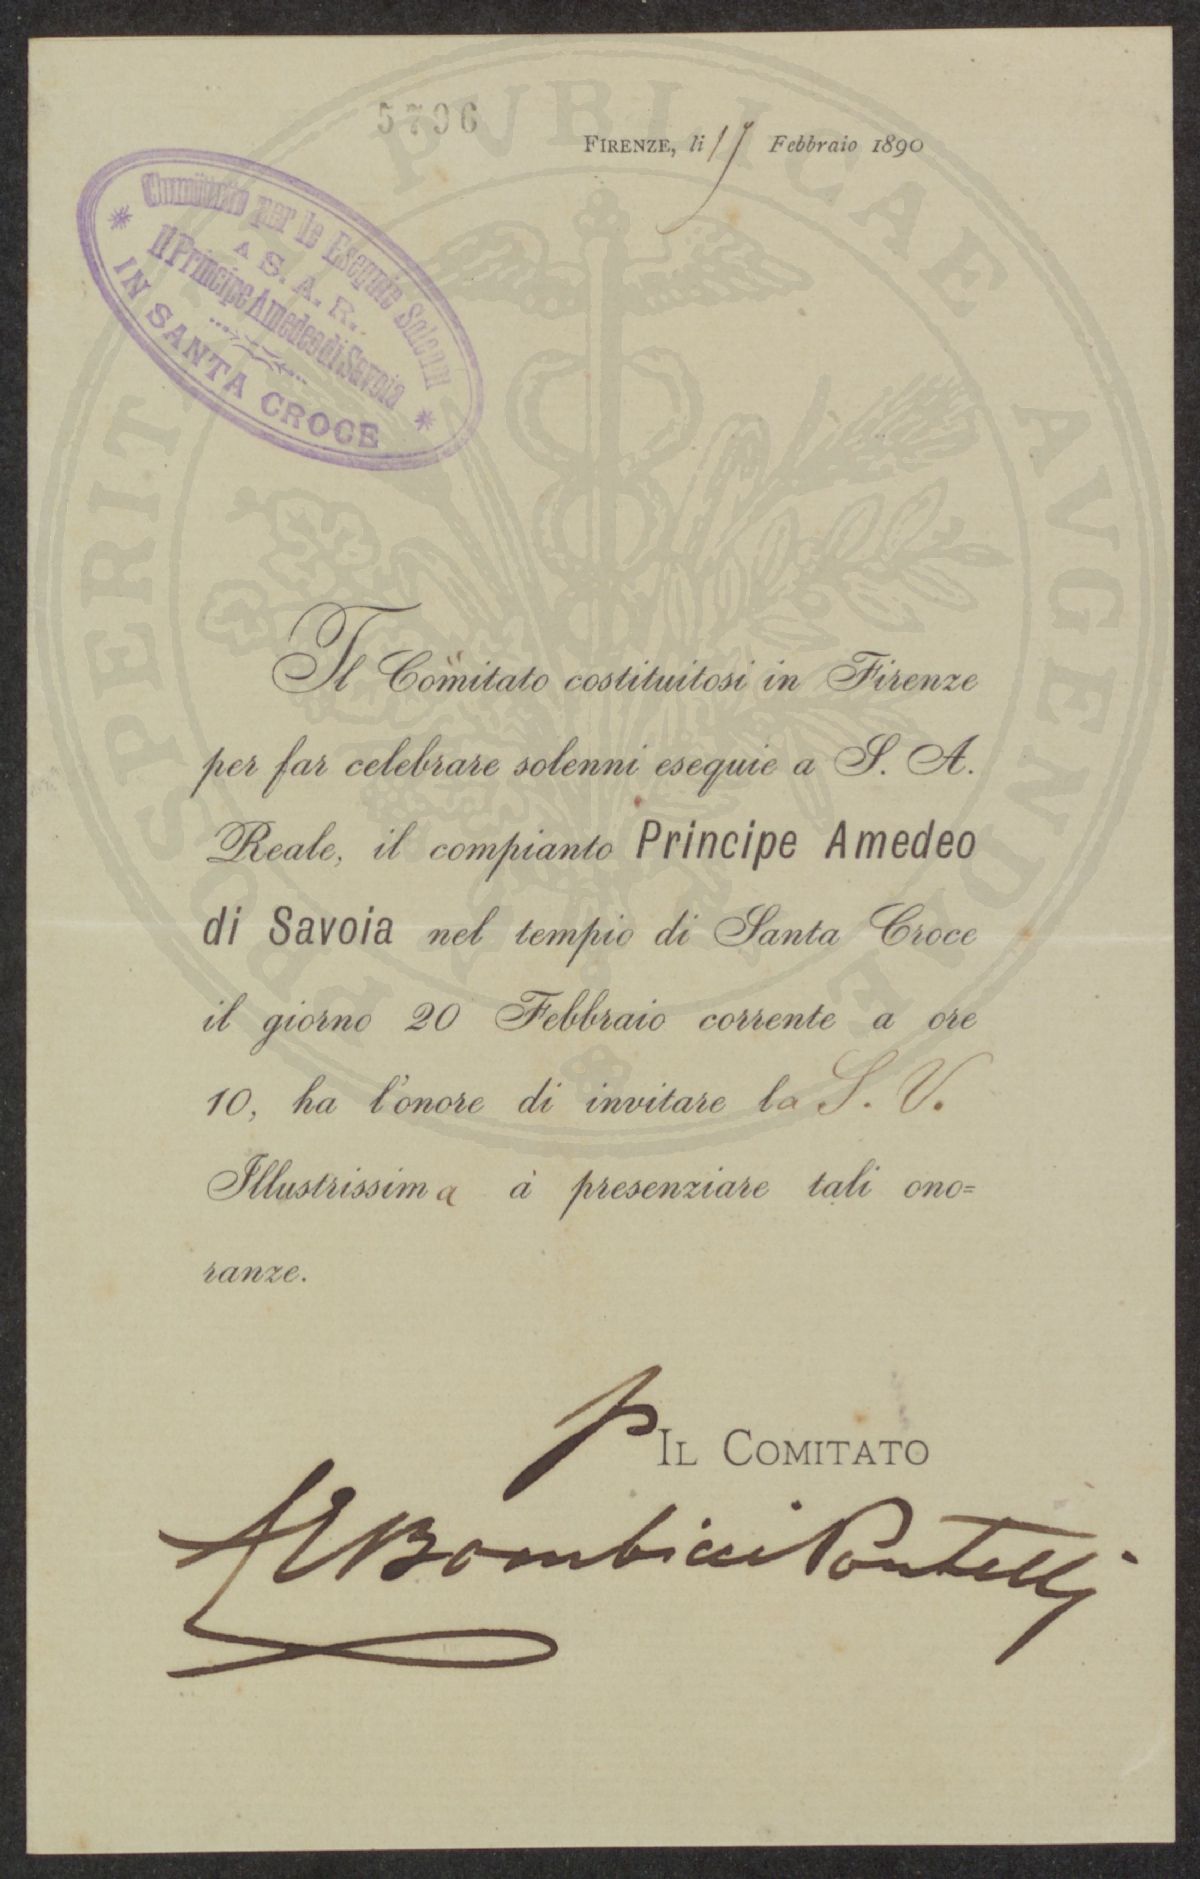 5796
FIRENZE, li 17 Febbraio 1890
Comitato per le Esequie Solenni
A S. A. R.
Il Principe Amedeo di Savoia
IN SANTA CROCE
Il Comitato costituitosi in Firenze
per far celebrare solenni esequie a S. A.
Reale, il compianto Principe Amedeo
di Savoia nel tempio di Santa Croce
il giorno 20 Febbraio corrente a ore
10, ha l'onore di invitare la S. V.
Illustrissima a presenziare tali ono=
ranze.
p IL COMITATO
Bombicci Pontelli
PROSPERITATI PVBLICAE AVGENDAE